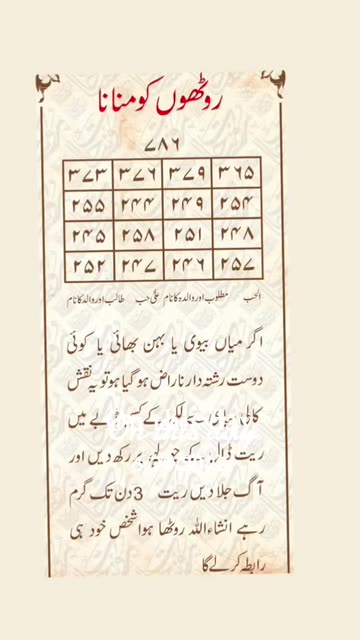 روٹھوں کو منانا
۷۸۶
۳۷۳ ۳۷۶ ۳۷۹ ۳۶۵
۲۵۵ ۲۴۴ ۲۴۹ ۲۵۴
۲۴۵ ۲۵۸ ۲۵۱ ۲۴۸
۲۵۲ ۲۴۷ ۲۴۶ ۲۵۷
الحب مطلوب اور والدہ کا نام علی حب طالب اور والد کا نام
اگر میاں بیوی یا بہن بھائی یا کوئی
دوست رشتہ دار ناراض ہو گیا ہو تو یہ نقش
کالی سے لکھ کے بے میں
ریت ڈال کے چولہے پر رکھ دیں اور
آگ جلا دیں ریت 3 دن تک گرم
رہے انشاءاللہ روٹھا ہوا شخص خود ہی
رابطہ کرلے گا